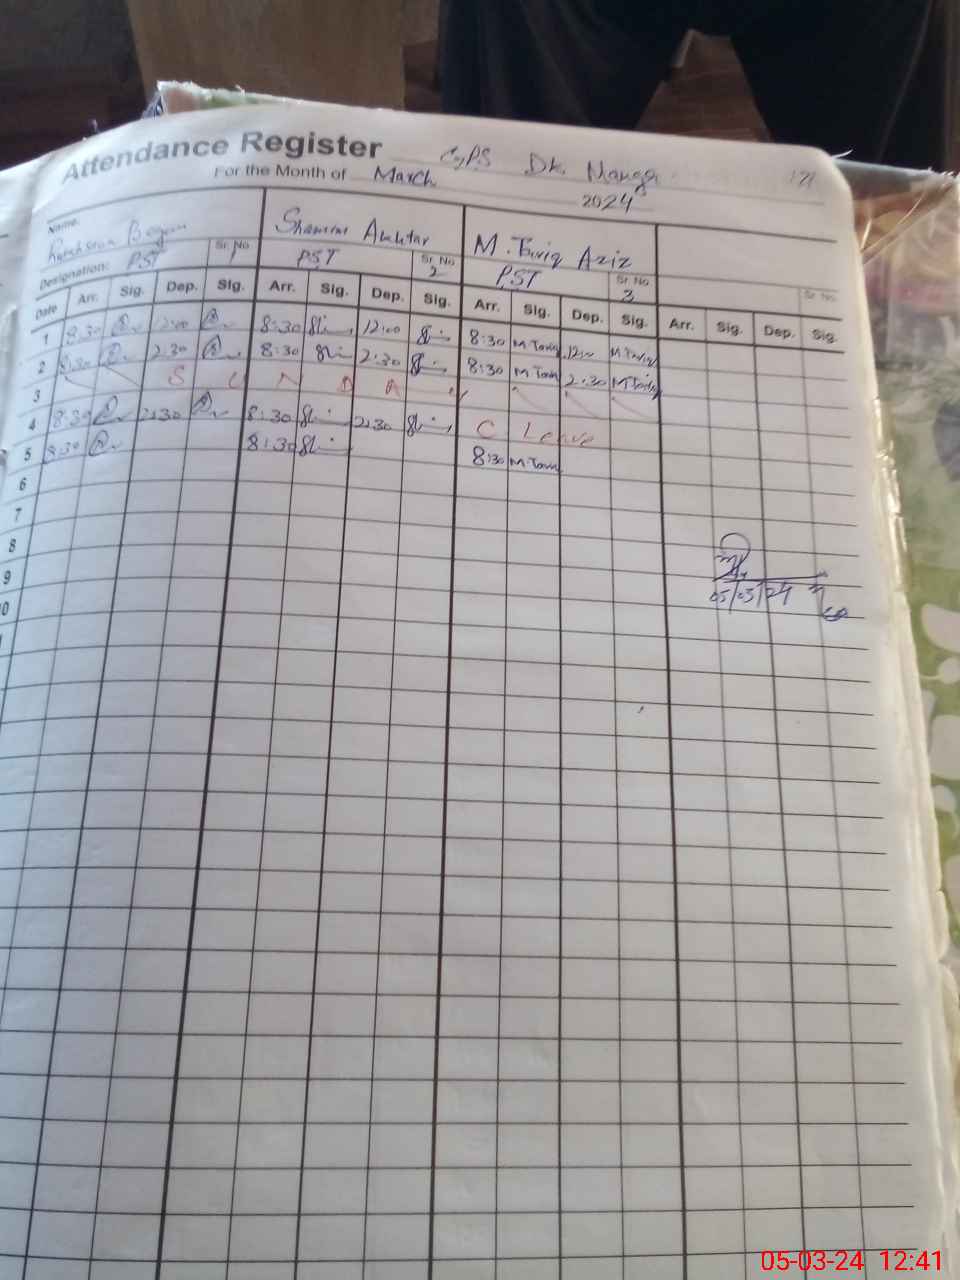 Attendance Register GPS Dk. Manga 121
For the Month of March 2024
Name: Begum Shamim Akhtar M. Tariq Aziz
Designation: PST Sr. No 1 PST Sr. No 2 PST Sr. No 3 Sr. No.
Date Arr. Sig. Dep. Sig. Arr. Sig. Dep. Sig. Arr. Sig. Dep. Sig. Arr. Sig. Dep. Sig.
1 8:30 12:00 8:30 12:00 8:30 M.Tariq 12:00 M.Tariq
2 8:30 2:30 8:30 2:30 8:30 M.Tariq 2:30 M.Tariq
3 S U N D A Y
4 8:30 2:30 8:30 2:30 C Leave
5 8:30 8:30 8:30 M.Tariq
6
7
8
9
10
05/03/24
05-03-24 12:41